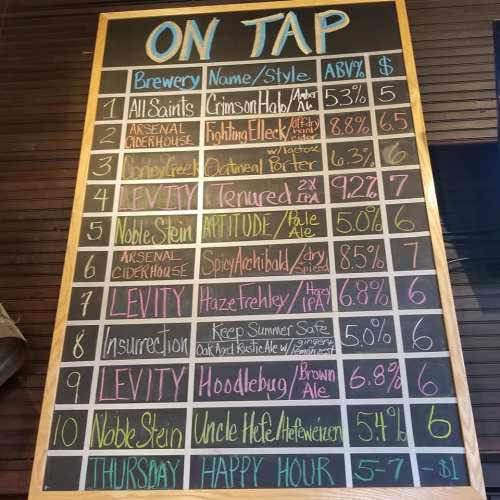 ON TAP
Brewery Name/Style ABV% $
1 All Saints Crimson Halo/Amber Ale 5.3% 5
2 ARSENAL CIDERHOUSE Fighting Elleck/off-dry hard cider 8.8% 6.5
3 Creek Oatmeal Porter w/lactose 6.3% 6
4 LEVITY Tenured 2X IPA 9.2% 7
5 Noble Stein APTITUDE/Pale Ale 5.0% 6
6 ARSENAL CIDERHOUSE Spicy Archibald/dry Spiced 8.5% 7
7 LEVITY Haze Frehley/Hazy IPA 6.8% 6
8 Insurrection Keep Summer Safe Oak Aged Rustic Ale w/ginger + lemon zest 5.0% 6
9 LEVITY Hoodlebug/Brown Ale 6.8% 6
10 Noble Stein Uncle Hefe/Hefeweizen 5.4% 6
THURSDAY HAPPY HOUR 5-7 -$1